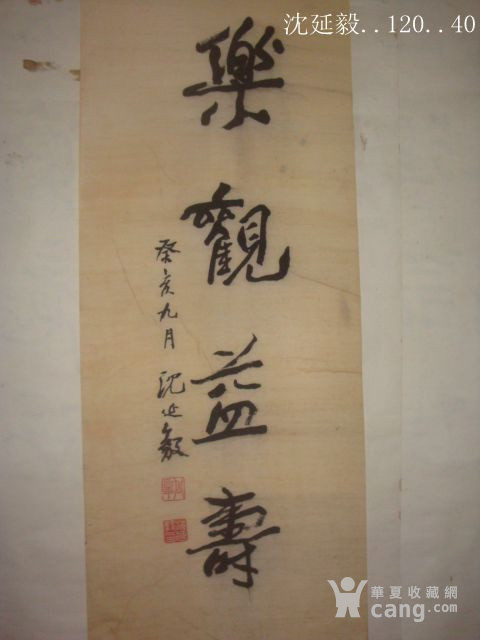 沈延毅..120..40
樂觀益壽
癸亥九月 沈延毅
華夏收藏網
cang.com